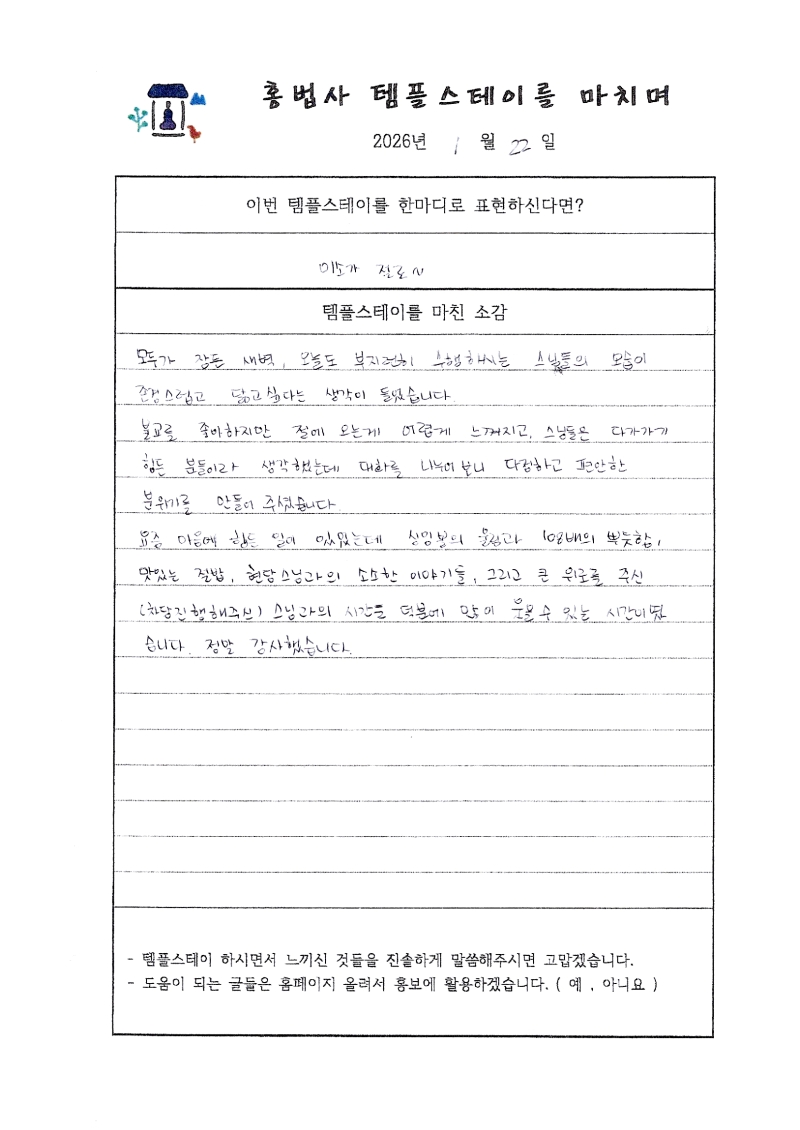 홍법사 템플스테이를 마치며
2026년 1 월 22 일
이번 템플스테이를 한마디로 표현하신다면?
미소가 절로~
템플스테이를 마친 소감
모두가 잠든 새벽, 오늘도 부지런히 수행하시는 스님들의 모습이
존경스럽고 닮고싶다는 생각이 들었습니다.
불교를 좋아하지만 절에 오는게 어렵게 느껴지고, 스님들은 다가가기
힘든 분들이라 생각했는데 대화를 나누어보니 다정하고 편안한
분위기를 만들어 주셨습니다.
요즘 마음에 힘든 일이 있었는데 싱잉볼의 울림과 108배의 뿌듯함,
맛있는 절밥, 현당스님과의 소소한 이야기들, 그리고 큰 위로를 주신
(차담진행해주신) 스님과의 시간들 덕분에 많이 웃을 수 있는 시간이었
습니다. 정말 감사했습니다.
- 템플스테이 하시면서 느끼신 것들을 진솔하게 말씀해주시면 고맙겠습니다.
- 도움이 되는 글들은 홈페이지 올려서 홍보에 활용하겠습니다. ( 예 , 아니요 )